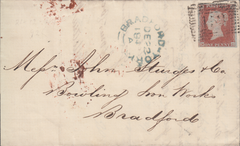 BRADFORD-YO
Messrs John Sturges & Co
Bowling Iron Works
Bradford